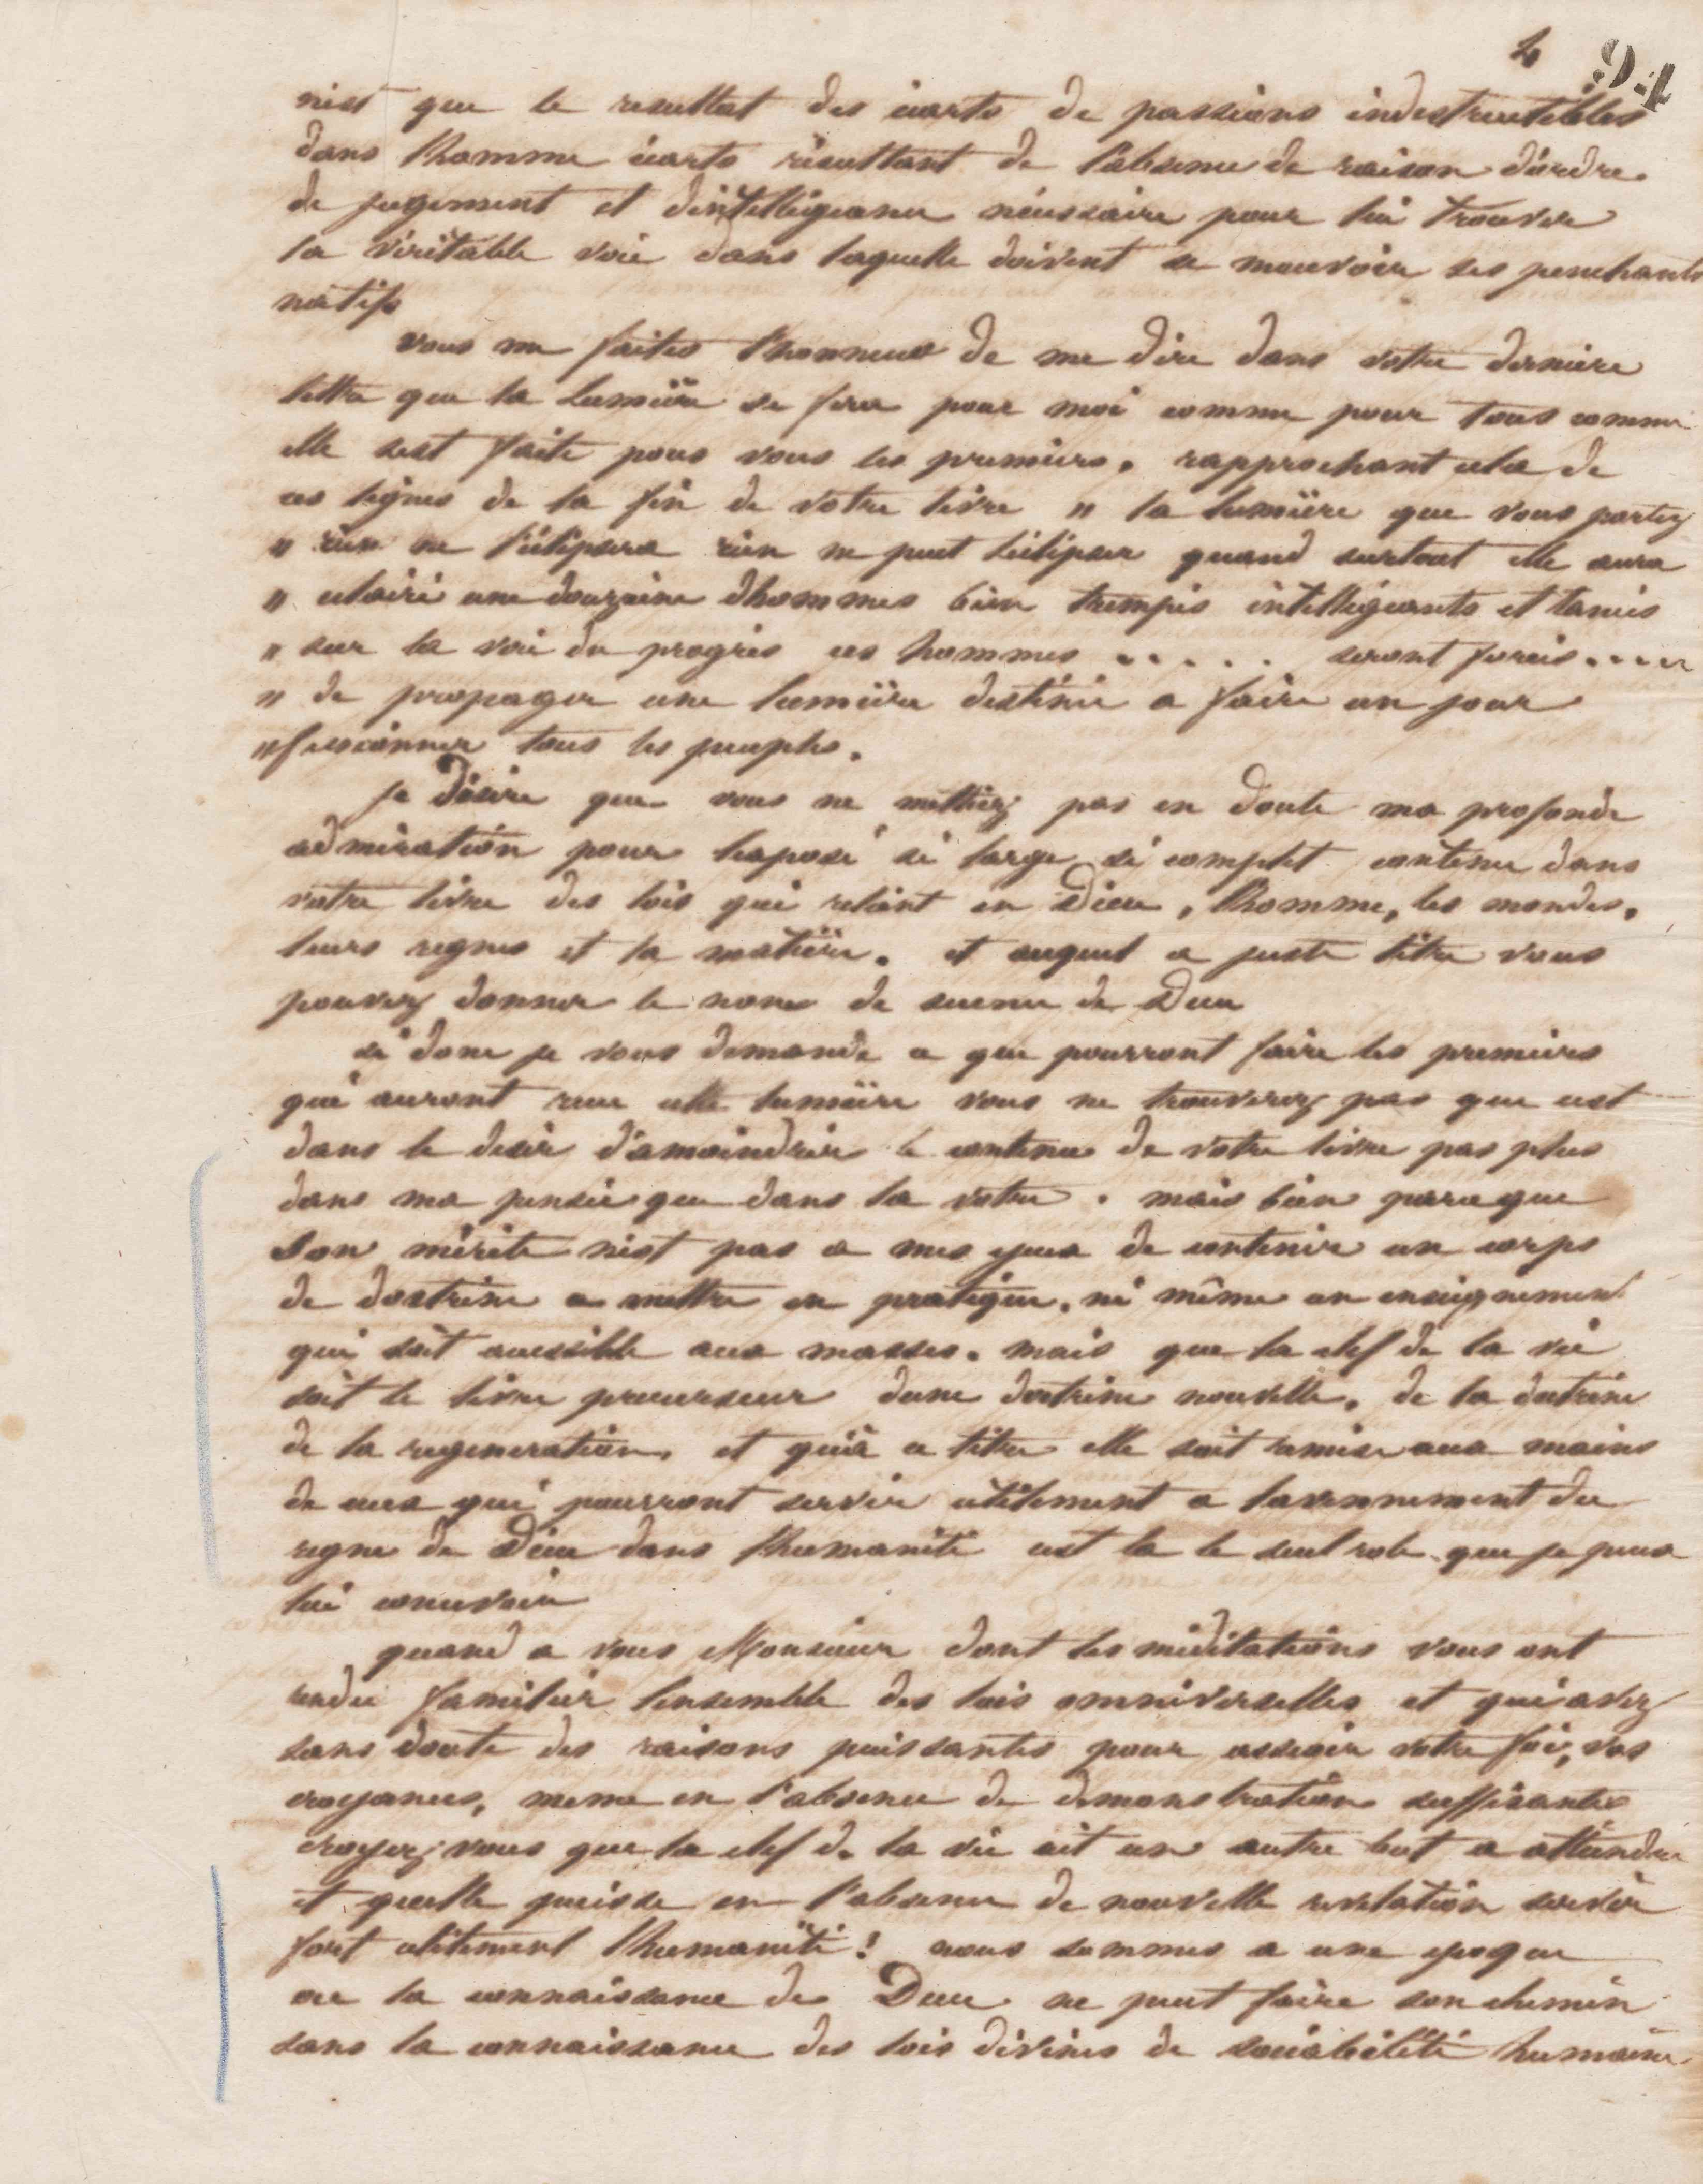 4 94
nest que le resultat des écarts de passions indestructibles
dans l'homme écarts résultant de l'absence de raison d'ordre
de jugement et d'intelligeance nécessaire pour lui trouver
la véritable voie dans laquelle doivent se mouvoir ses penchants
natifs
vous me faites l'honneur de me dire dans votre derniere
lettre que la lumière se fera pour moi comme pour tous comme
elle sest faite pour vous les premiers. rapprochant cela de
ces lignes de la fin de votre livre " la lumière que vous portez
" rien ne l'éclipsera rien ne peut l'éclipser quand surtout elle aura
" eclairé une douzaine dhommes bien trempés intelligeants et lancés
" sur la voie du progrès ces hommes ..... seront forcés ....
" de propager une lumière destinée a faire un jour
" fusionner tous les peuples.
je désire que vous ne mettiez pas en doute ma profonde
admiration pour l'exposé si large si complet contenu dans
votre livre des lois qui relient en Dieu, l'homme, les mondes,
leurs regnes et la matière. et auquel a juste titre vous
pouvez donner le nom de science de Dieu
si donc je vous demande ce que pourront faire les premiers
qui auront recu cette lumière vous ne trouverez pas que cest
dans le desir d'amoindrir le contenu de votre livre pas plus
dans ma pensée que dans la votre. mais bien parceque
son mérite n'est pas a mes yeux de contenir un corps
de doctrine a mettre en pratique. ni même un enseignement
qui soit accessible aux masses. mais que la clef de la vie
soit le livre precurseur dune doctrine nouvelle. de la doctrine
de la regeneration, et qu'à ce titre elle soit remise aux mains
de ceux qui pourront servir utilement a l'avennement du
regne de Dieu dans l'humanité cest la le seul role que je peux
lui concevoir
quand a vous Monsieur dont les méditations vous ont
rendu familier lensemble des lois omniverselles et qui avez
sans doute des raisons puissantes pour asseoir votre foi, vos
croyances, meme en l'absence de demonstration suffisantes
croyez vous que la clef de la vie ait un autre but a atteindre
et quelle puisse en l'absence de nouvelle revelation servir
fort utilement l'humanité! nous sommes a une epoque
ou la connaissance de Dieu ne peut faire son chemin
sans la connaissance des lois divines de sociabilité humaine